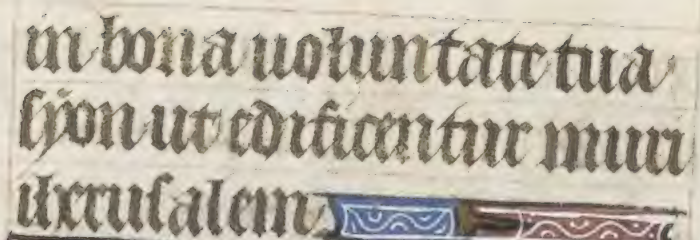 in bona uoluntate tua
syon ut edificentur muri
iherusalem